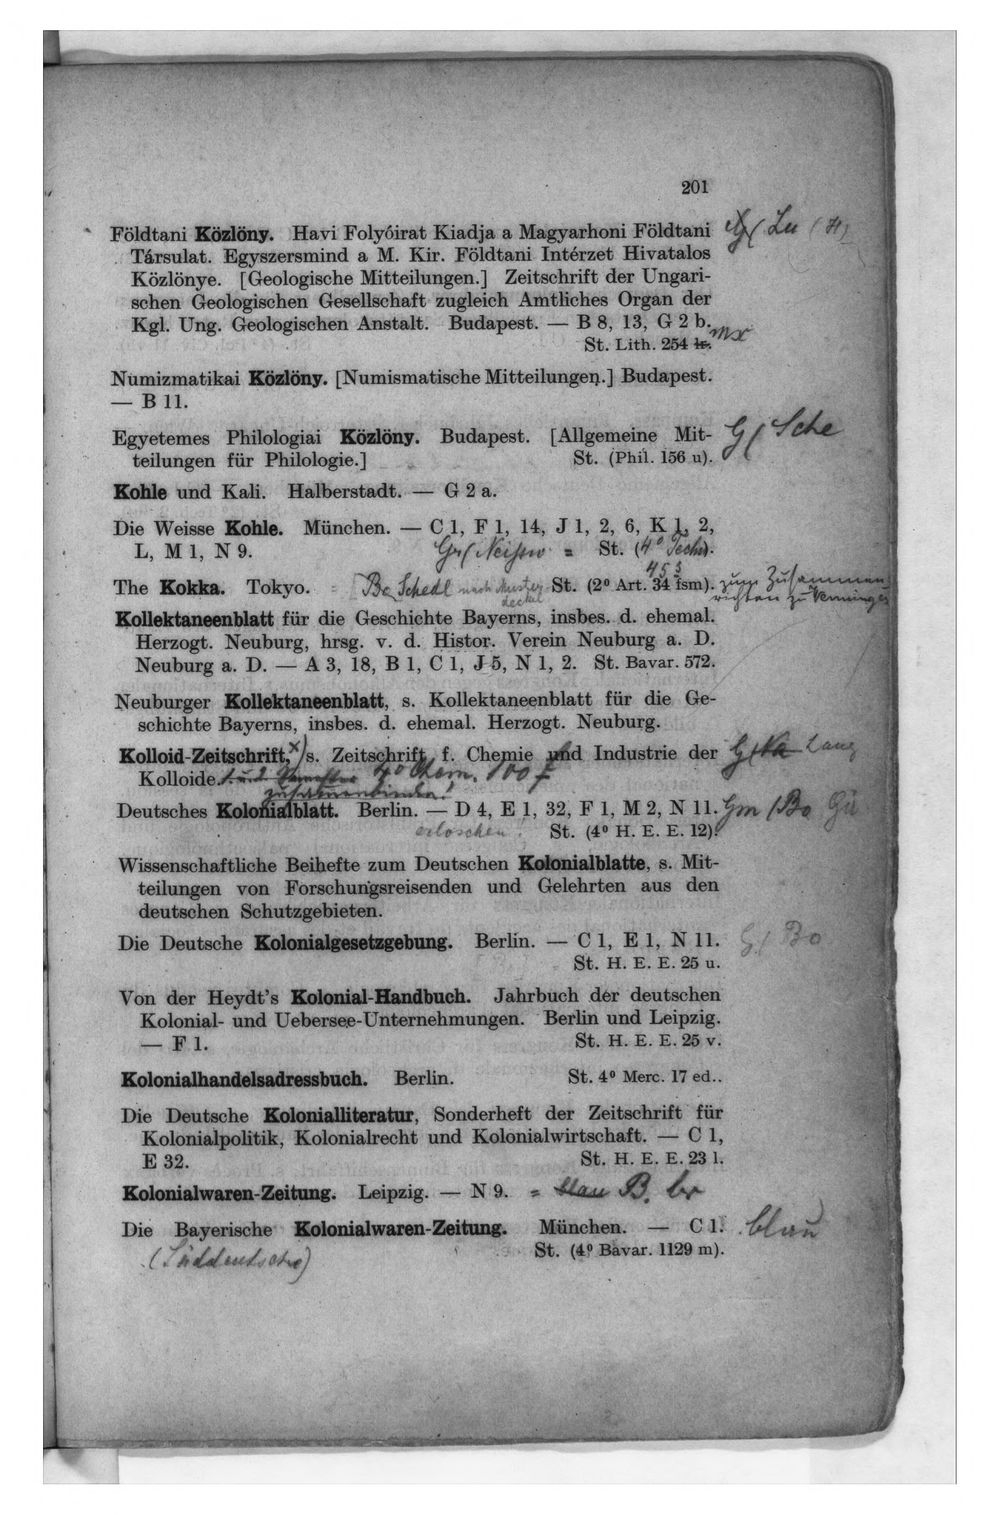 201
Földtani Közlöny. Havi Folyóirat Kiadja a Magyarhoni Földtani
Társulat. Egyszersmind a M. Kir. Földtani Intérzet Hivatalos
Közlönye. [Geologische Mitteilungen.] Zeitschrift der Ungari-
schen Geologischen Gesellschaft zugleich Amtliches Organ der
Kgl. Ung. Geologischen Anstalt. Budapest. — B 8, 13, G 2 b.
St. Lith. 254
Numizmatikai Közlöny. [Numismatische Mitteilungen.] Budapest.
— B 11.
Egyetemes Philologiai Közlöny. Budapest. [Allgemeine Mit- G/ Sche
teilungen für Philologie.] St. (Phil. 156 u).
Kohle und Kali. Halberstadt. — G 2 a.
Die Weisse Kohle. München. — C 1, F 1, 14, J 1, 2, 6, K 1, 2,
L, M 1, N 9. = St. (4° Techn).
453
The Kokka. Tokyo. Bo Schedl nach Muster St. (2° Art. 34 fsm). zum Zusammen
deckel richten zu
Kollektaneenblatt für die Geschichte Bayerns, insbes. d. ehemal.
Herzogt. Neuburg, hrsg. v. d. Histor. Verein Neuburg a. D.
Neuburg a. D. — A 3, 18, B 1, C 1, J 5, N 1, 2. St. Bavar. 572.
Neuburger Kollektaneenblatt, s. Kollektaneenblatt für die Ge-
schichte Bayerns, insbes. d. ehemal. Herzogt. Neuburg.
Kolloid-Zeitschrift, x) s. Zeitschrift f. Chemie und Industrie der
Kolloide. 4° Chem. 100 f
zusammenbinden!
Deutsches Kolonialblatt. Berlin. — D 4, E 1, 32, F 1, M 2, N 11. Gm / Bo
erloschen! St. (4° H. E. E. 12).
Wissenschaftliche Beihefte zum Deutschen Kolonialblatte, s. Mit-
teilungen von Forschungsreisenden und Gelehrten aus den
deutschen Schutzgebieten.
Die Deutsche Kolonialgesetzgebung. Berlin. — C 1, E 1, N 11. G / Bo
St. H. E. E. 25 u.
Von der Heydt's Kolonial-Handbuch. Jahrbuch der deutschen
Kolonial- und Uebersee-Unternehmungen. Berlin und Leipzig.
— F 1. St. H. E. E. 25 v.
Kolonialhandelsadressbuch. Berlin. St. 4° Merc. 17 ed..
Die Deutsche Kolonialliteratur, Sonderheft der Zeitschrift für
Kolonialpolitik, Kolonialrecht und Kolonialwirtschaft. — C 1,
E 32. St. H. E. E. 23 l.
Kolonialwaren-Zeitung. Leipzig. — N 9. = blau B. br
Die Bayerische Kolonialwaren-Zeitung. München. — C 1. blau
(Süddeutsche) St. (4° Bavar. 1129 m).